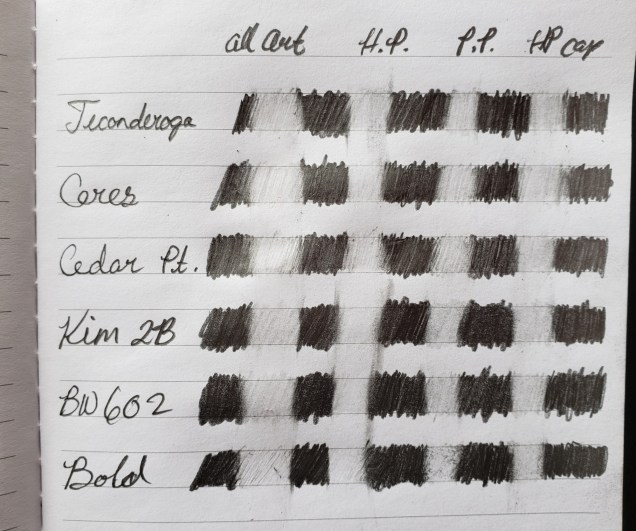 all art H.P. P.P. HP cap
Ticonderoga
Ceres
Cedar Pt.
Kim 2B
BW602
Bold